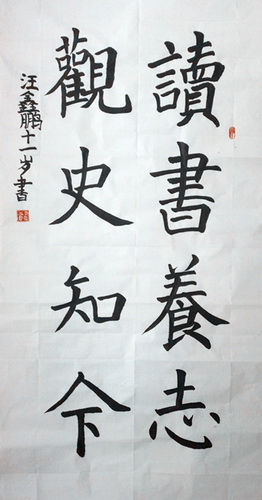 讀書養志
觀史知今
汪鑫鵬十一岁書